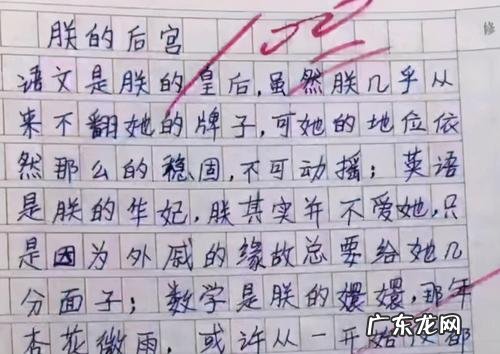 朕的后宫
修
语文是朕的皇后,虽然朕几乎从
来不翻她的牌子,可她的地位依
然那么的稳固,不可动摇;英语
是朕的华妃,朕其实并不爱她,只
是因为外戚的缘故总要给她几
分面子;数学是朕的嬛嬛,那年
杏花微雨,或许从一开始
都
广东龙网